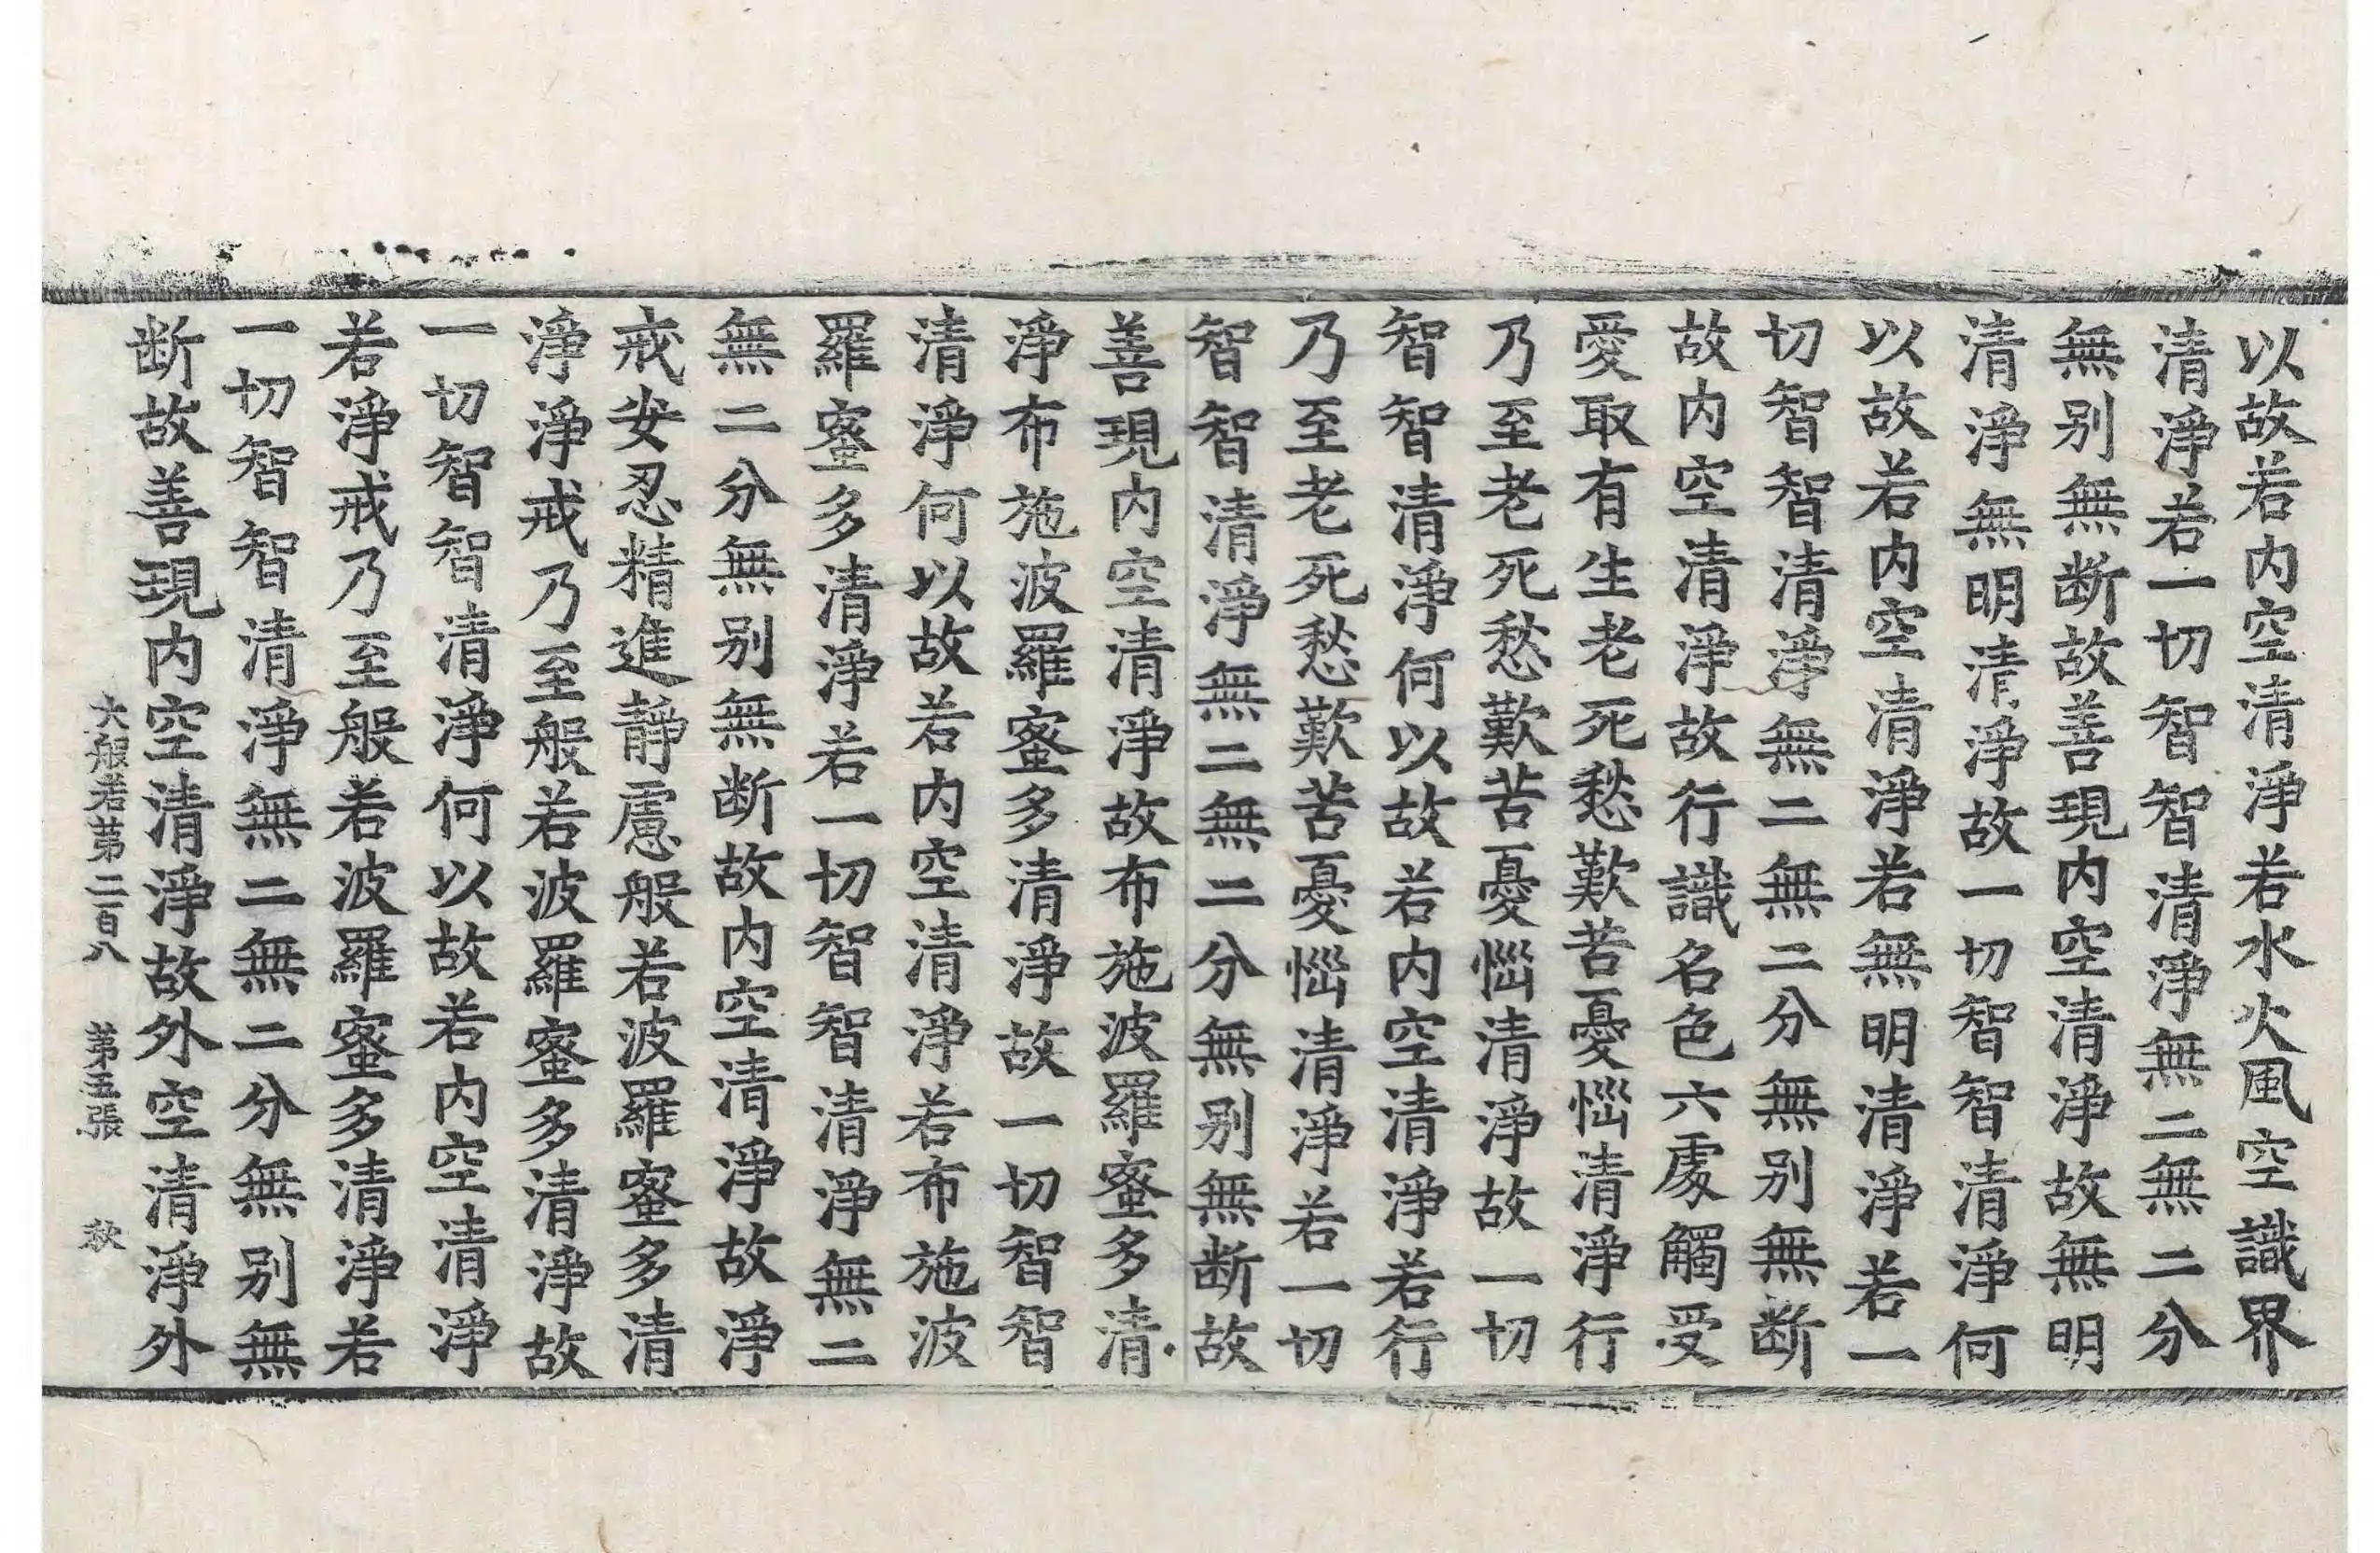 以故若内空清淨若水火風空識界
清淨若一切智智清淨無二無二分
無別無断故善現内空清淨故無明
清淨無明清淨故一切智智清淨何
以故若内空清淨若無明清淨若一
切智智清淨無二無二分無別無断
故内空清淨故行識名色六處觸受
愛取有生老死愁歎苦憂惱清淨行
乃至老死愁歎苦憂惱清淨故一切
智智清淨何以故若内空清淨若行
乃至老死愁歎苦憂惱清淨若一切
智智清淨無二無二分無別無断故
善現内空清淨故布施波羅蜜多清
淨布施波羅蜜多清淨故一切智智
清淨何以故若内空清淨若布施波
羅蜜多清淨若一切智智清淨無二
無二分無別無断故内空清淨故淨
戒安忍精進靜慮般若波羅蜜多清
淨淨戒乃至般若波羅蜜多清淨故
一切智智清淨何以故若内空清淨
若淨戒乃至般若波羅蜜多清淨若
一切智智清淨無二無二分無別無
断故善現内空清淨故外空清淨外
大般若第二百八 第五張 秋